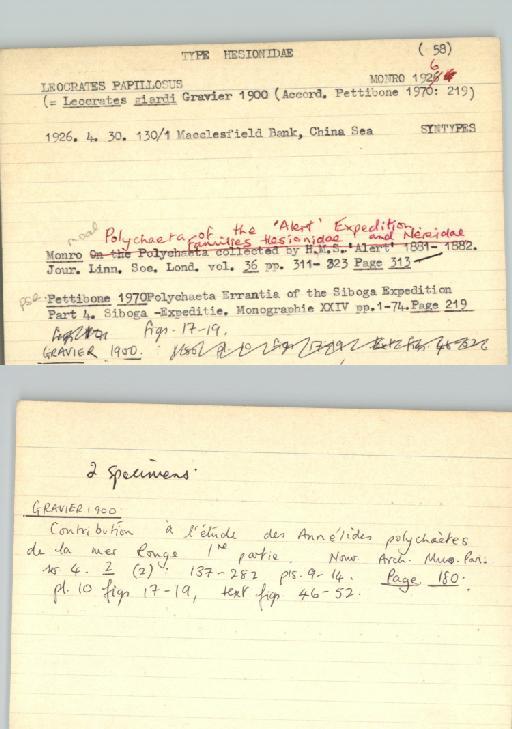 TYPE HESIONIDAE
( 58)
LEOCRATES PAPILLOSUS
MONRO 1926
(= Leocrates giardi Gravier 1900 (Accord. Pettibone 1970: 219)
1926. 4. 30. 130/1 Macclesfield Bank, China Sea
SYNTYPES
Polychaeta of the 'Alert' Expedition
families Hesionidae and Nereidae
Monro On the Polychaeta collected by H.M.S. 'Alert' 1881- 1882.
Jour. Linn. Soc. Lond. vol. 36 pp. 311- 323 Page 313
Pettibone 1970 Polychaeta Errantia of the Siboga Expedition
Part 4. Siboga -Expeditie. Monographie XXIV pp.1-74. Page 219
figs. 17-19.
GRAVIER 1900.
2 specimens.
GRAVIER 1900
Contribution à l'étude des Annélides polychaètes
de la mer Rouge 1re partie. Nouv. Arch. Mus. Par.
4. 2 (2): 137-282 pls. 9-14. Page 180.
pl. 10 figs 17-19, text figs 46-52.